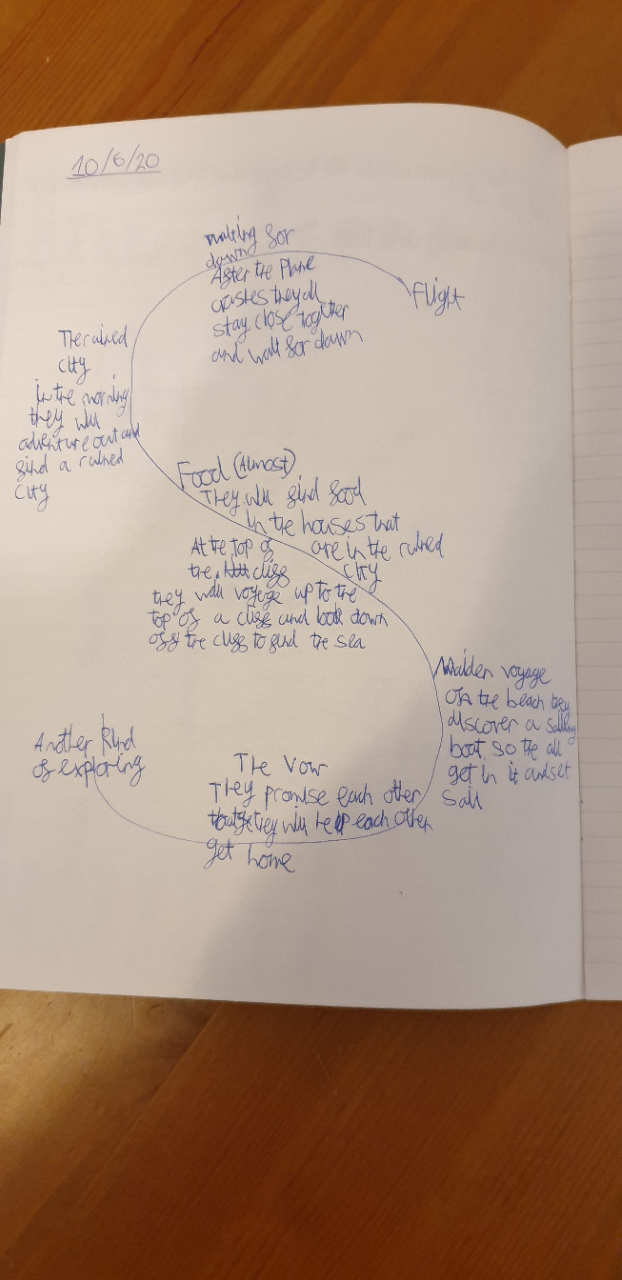 10/6/20
waiting for
dawn
After the plane
crashes they all
stay close together
and wait for dawn
Flight
The ruined
city
in the morning
they will
adventure out and
find a ruined
city
Food (Almost)
They will find food
in the houses that
are in the ruined
city
At the top of
the cliff
they will voyage up to the
top of a cliff and look down
off the cliff to find the sea
Maiden voyage
On the beach they
discover a sailing
boat. so the all
get in it and set
sail
The Vow
They promise each other
they will help each other
get home
Another kind
of exploring